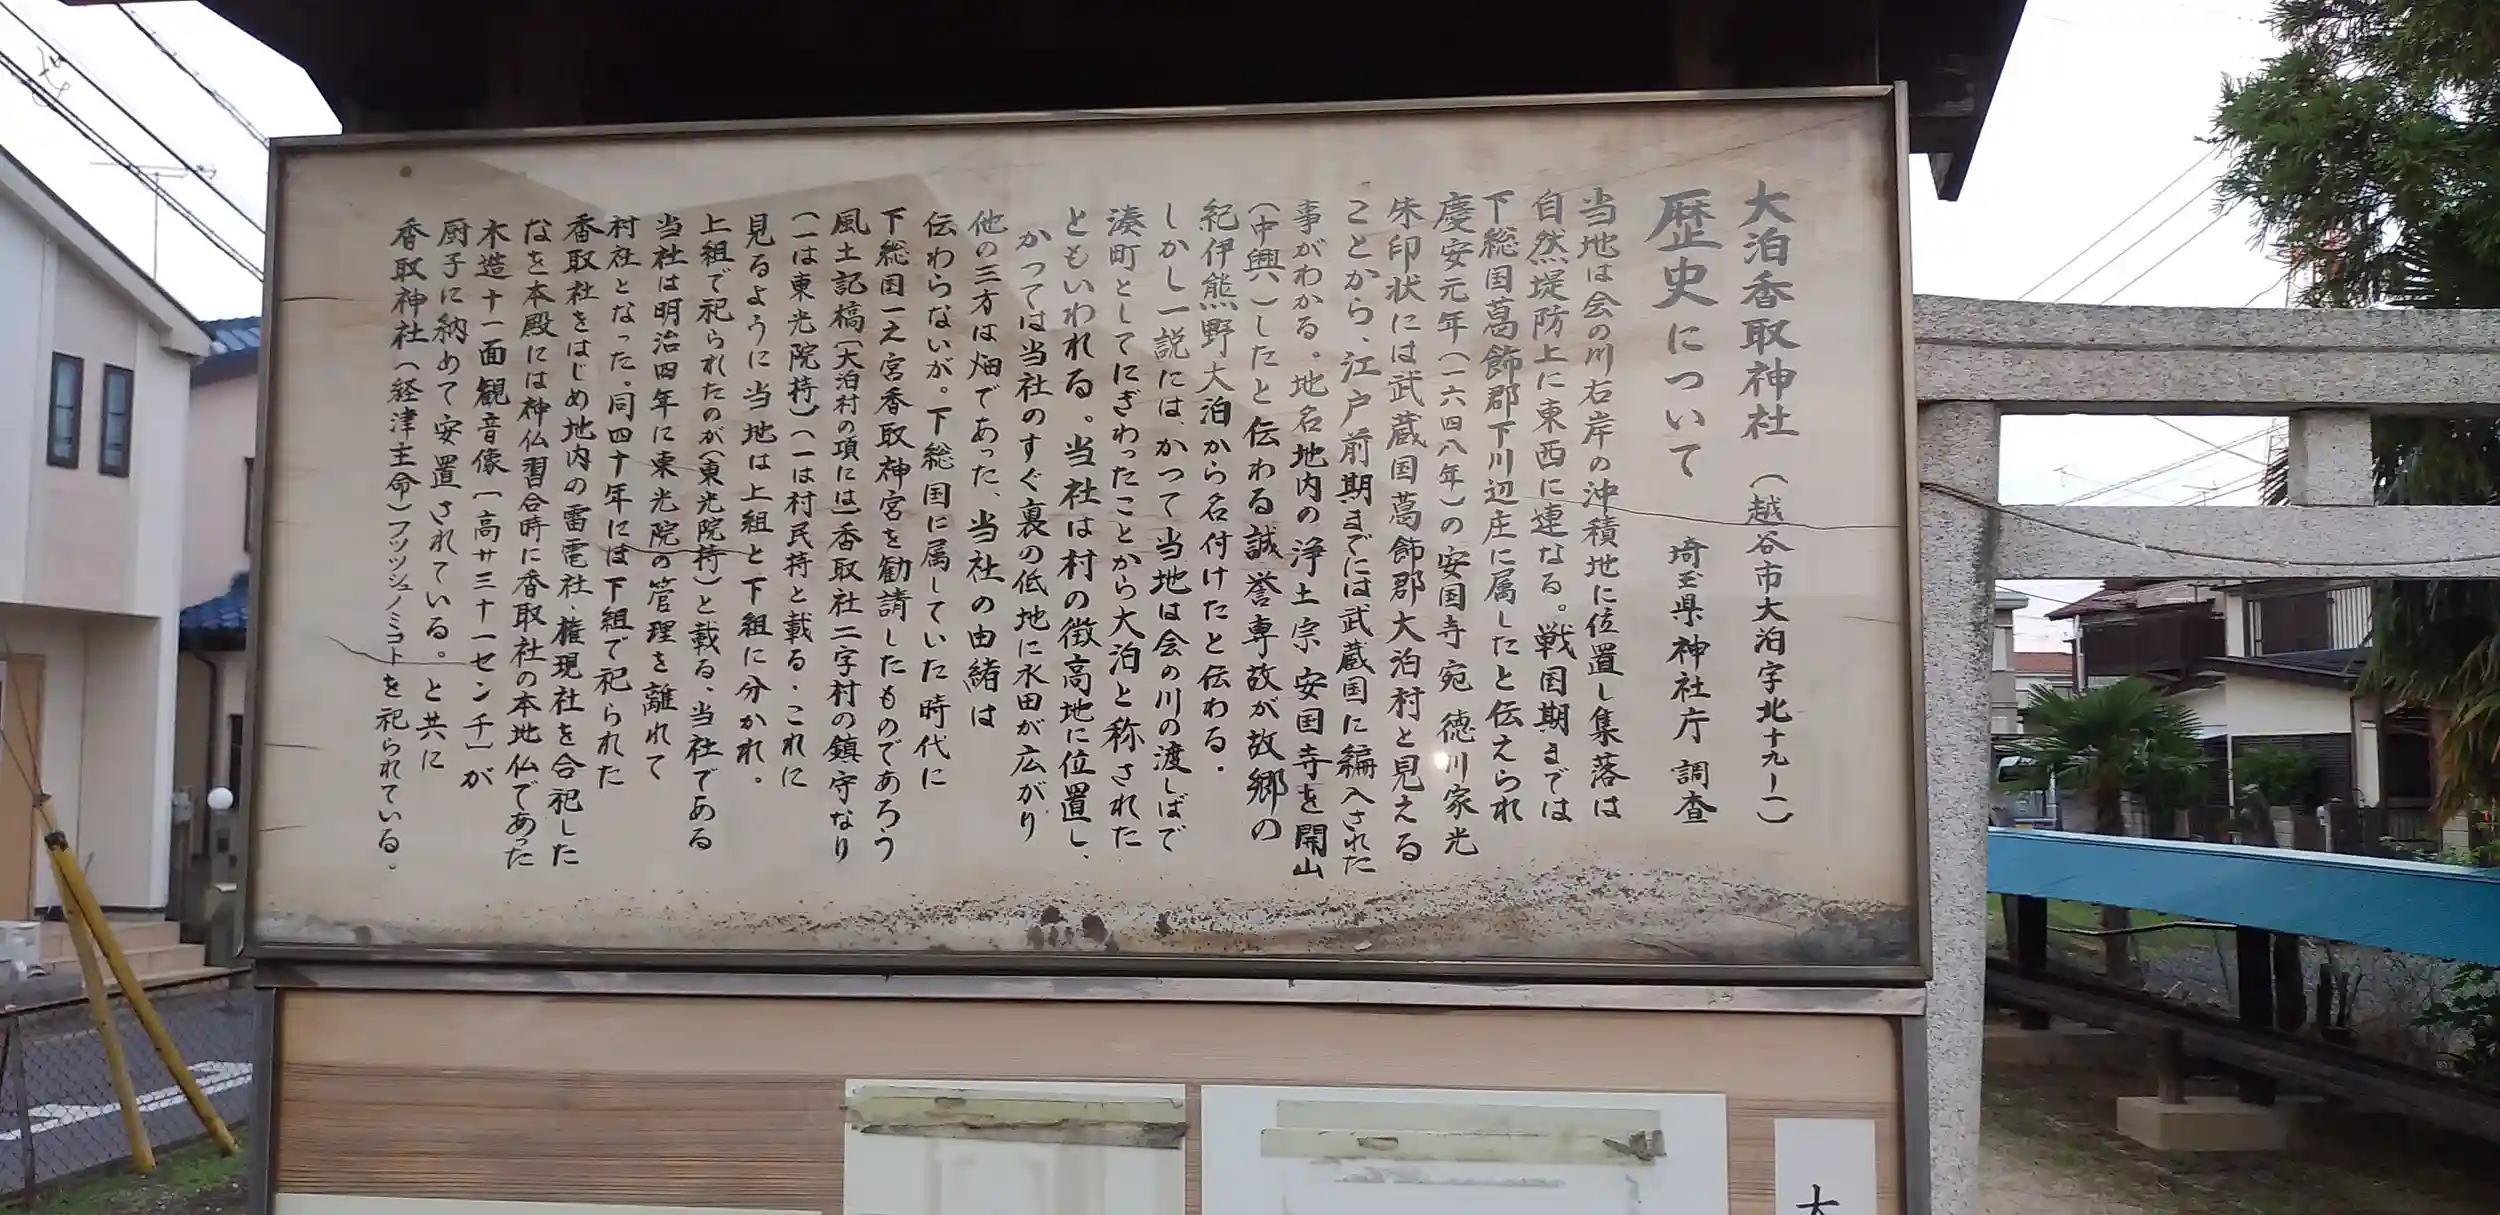 大泊香取神社 (越谷市大泊字北十九ー一)
歴史について 埼玉県神社庁 調査
当地は会の川右岸の沖積地に位置し集落は
自然堤防上に東西に連なる。戦国期までは
下総国葛飾郡下川辺庄に属したと伝えられ
慶安元年(一六四八年)の安国寺宛 徳川家光
朱印状には武蔵国葛飾郡大泊村と見える
ことから、江戸前期までには武蔵国に編入された
事がわかる。地名地内の浄土宗 安国寺を開山
(中興)したと伝わる誠誉専故が故郷の
紀伊熊野大泊から名付けたと伝わる.
しかし一説には、かつて当地は会の川の渡しばで
湊町としてにぎわったことから大泊と称された
ともいわれる。当社は村の微高地に位置し、
かつては当社のすぐ裏の低地に水田が広がり、
他の三方は畑であった、当社の由緒は
伝わらないが。下総国に属していた時代に
下総国一之宮香取神宮を勧請したものであろう
風土記稿〔大泊村の項には〕香取社二字村の鎮守なり
(一は東光院持)(一は村民持と載る.これに
見るように当地は上組と下組に分かれ.
上組で祀られたのが(東光院持)と載る、当社である
当社は明治四年に東光院の管理を離れて
村社となった。同四十年には下組で祀られた
香取社をはじめ地内の雷電社.権現社を合祀した
なを本殿には神仏習合時に香取社の本地仏であった
木造十一面観音像〔高サ三十一センチ〕が
厨子に納めて安置されている。と共に
香取神社(経津主命)フツヅシュノミコトを祀られている.
大